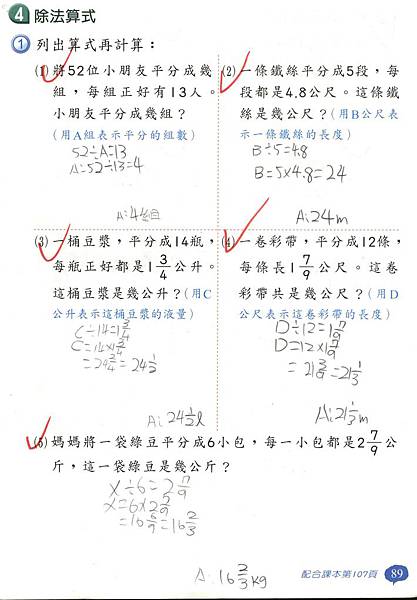 4 除法算式
1 列出算式再計算：
(1) 將52位小朋友平分成幾
組，每組正好有13人。
小朋友平分成幾組？
(用A組表示平分的組數)
52÷A=13
A=52÷13=4
A:4組
(2) 一條鐵絲平分成5段，每
段都是4.8公尺。這條鐵
絲是幾公尺？(用B公尺表
示一條鐵絲的長度)
B÷5=4.8
B=5×4.8=24
A:24m
(3) 一桶豆漿，平分成14瓶，
每瓶正好都是1 3/4 公升。
這桶豆漿是幾公升？(用C
公升表示這桶豆漿的液量)
C÷14=1 3/4
C=14×1 3/4
=24 2/4=24 1/2
A:24 1/2 l
(4) 一卷彩帶，平分成12條，
每條長1 7/9 公尺。這卷
彩帶共是幾公尺？(用D
公尺表示這卷彩帶的長度)
D÷12=1 7/9
D=12×1 7/9
=21 3/9=21 1/3
A:21 1/3 m
(5) 媽媽將一袋綠豆平分成6小包，每一小包都是2 7/9 公
斤，這一袋綠豆是幾公斤？
X÷6=2 7/9
X=6×2 7/9
=16 6/9=16 2/3
A:16 2/3 kg
配合課本第107頁 89